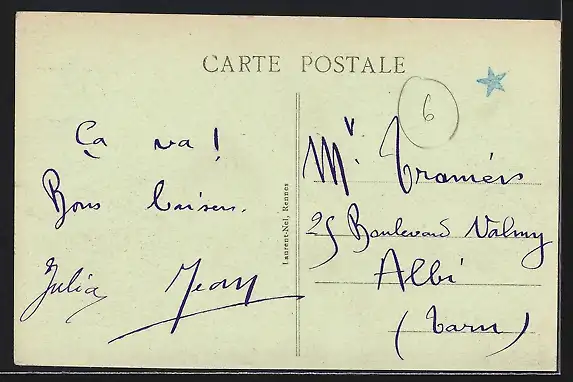 CARTE POSTALE
6
Ça va !
Bons baisers.
Julia Jean
Laurent-Nel, Rennes
Mr. Tramérs
25 Boulevard Valmy
Albi
(Tarn)